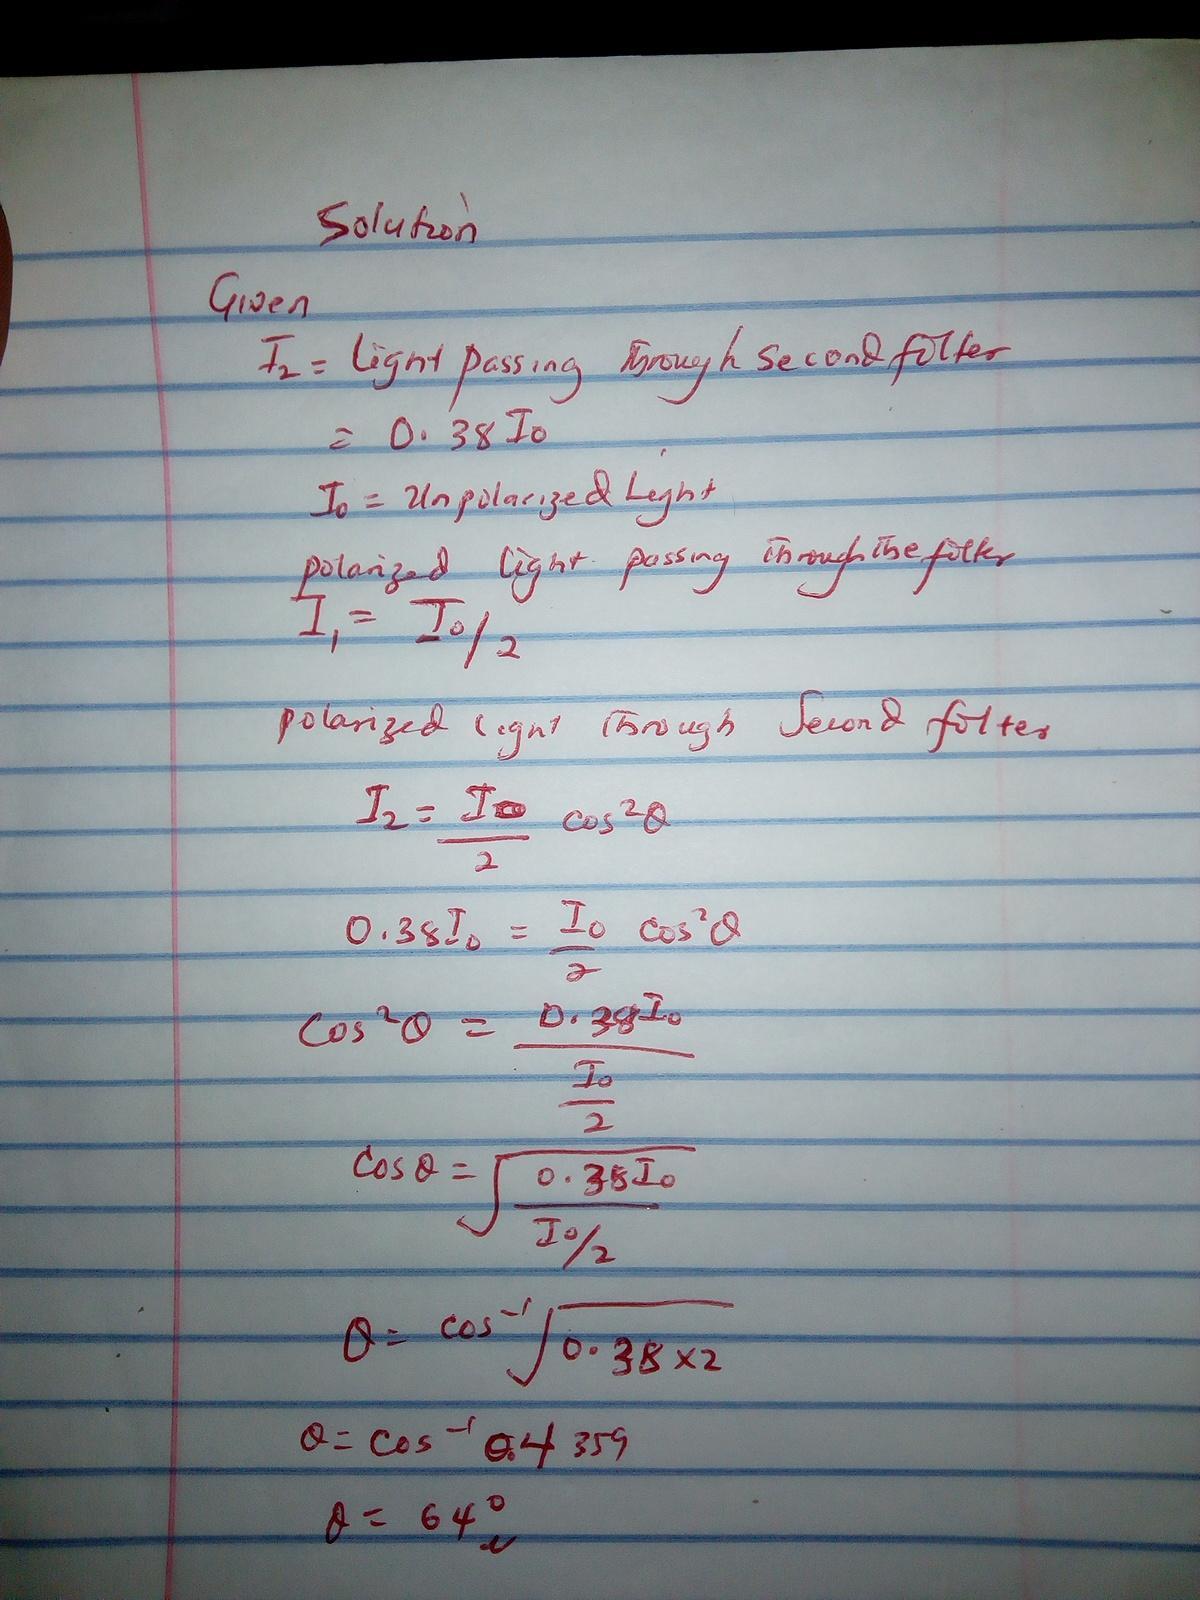 Solution
Given
I₂ = Light passing through second filter
= 0.38 I₀
I₀ = Unpolarized Light
polarized light passing through the filter
I₁ = I₀/2
polarized light through Second filter
I₂ = I₀/2 cos²θ
0.38I₀ = I₀/2 cos²θ
Cos²θ = 0.38I₀ / (I₀/2)
Cosθ = √(0.38I₀ / (I₀/2))
θ = cos⁻¹ √(0.38 × 2)
θ = cos⁻¹ 0.4359
θ = 64°